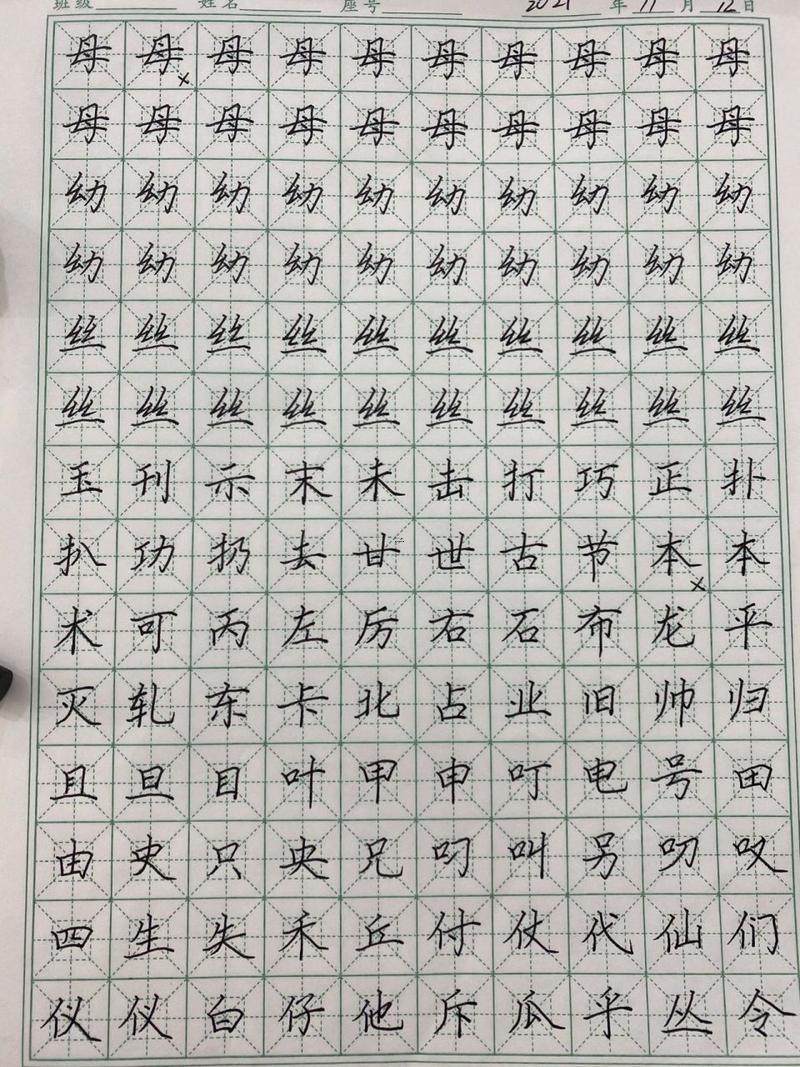 班级 姓名 座号 2021 年 11 月 12 日
母 母 母 母 母 母 母 母 母 母
母 母 母 母 母 母 母 母 母 母
幼 幼 幼 幼 幼 幼 幼 幼 幼 幼
幼 幼 幼 幼 幼 幼 幼 幼 幼 幼
丝 丝 丝 丝 丝 丝 丝 丝 丝 丝
丝 丝 丝 丝 丝 丝 丝 丝 丝 丝
玉 刊 示 末 未 击 打 巧 正 扑
扒 功 扔 去 甘 世 古 节 本 本
术 可 丙 左 厉 右 石 布 龙 平
灭 轧 东 卡 北 占 业 旧 帅 归
且 旦 目 叶 甲 申 叮 电 号 田
由 史 只 央 兄 叼 叫 另 叨 叹
四 生 失 禾 丘 付 仗 代 仙 们
仪 仪 白 仔 他 斥 瓜 乎 丛 令